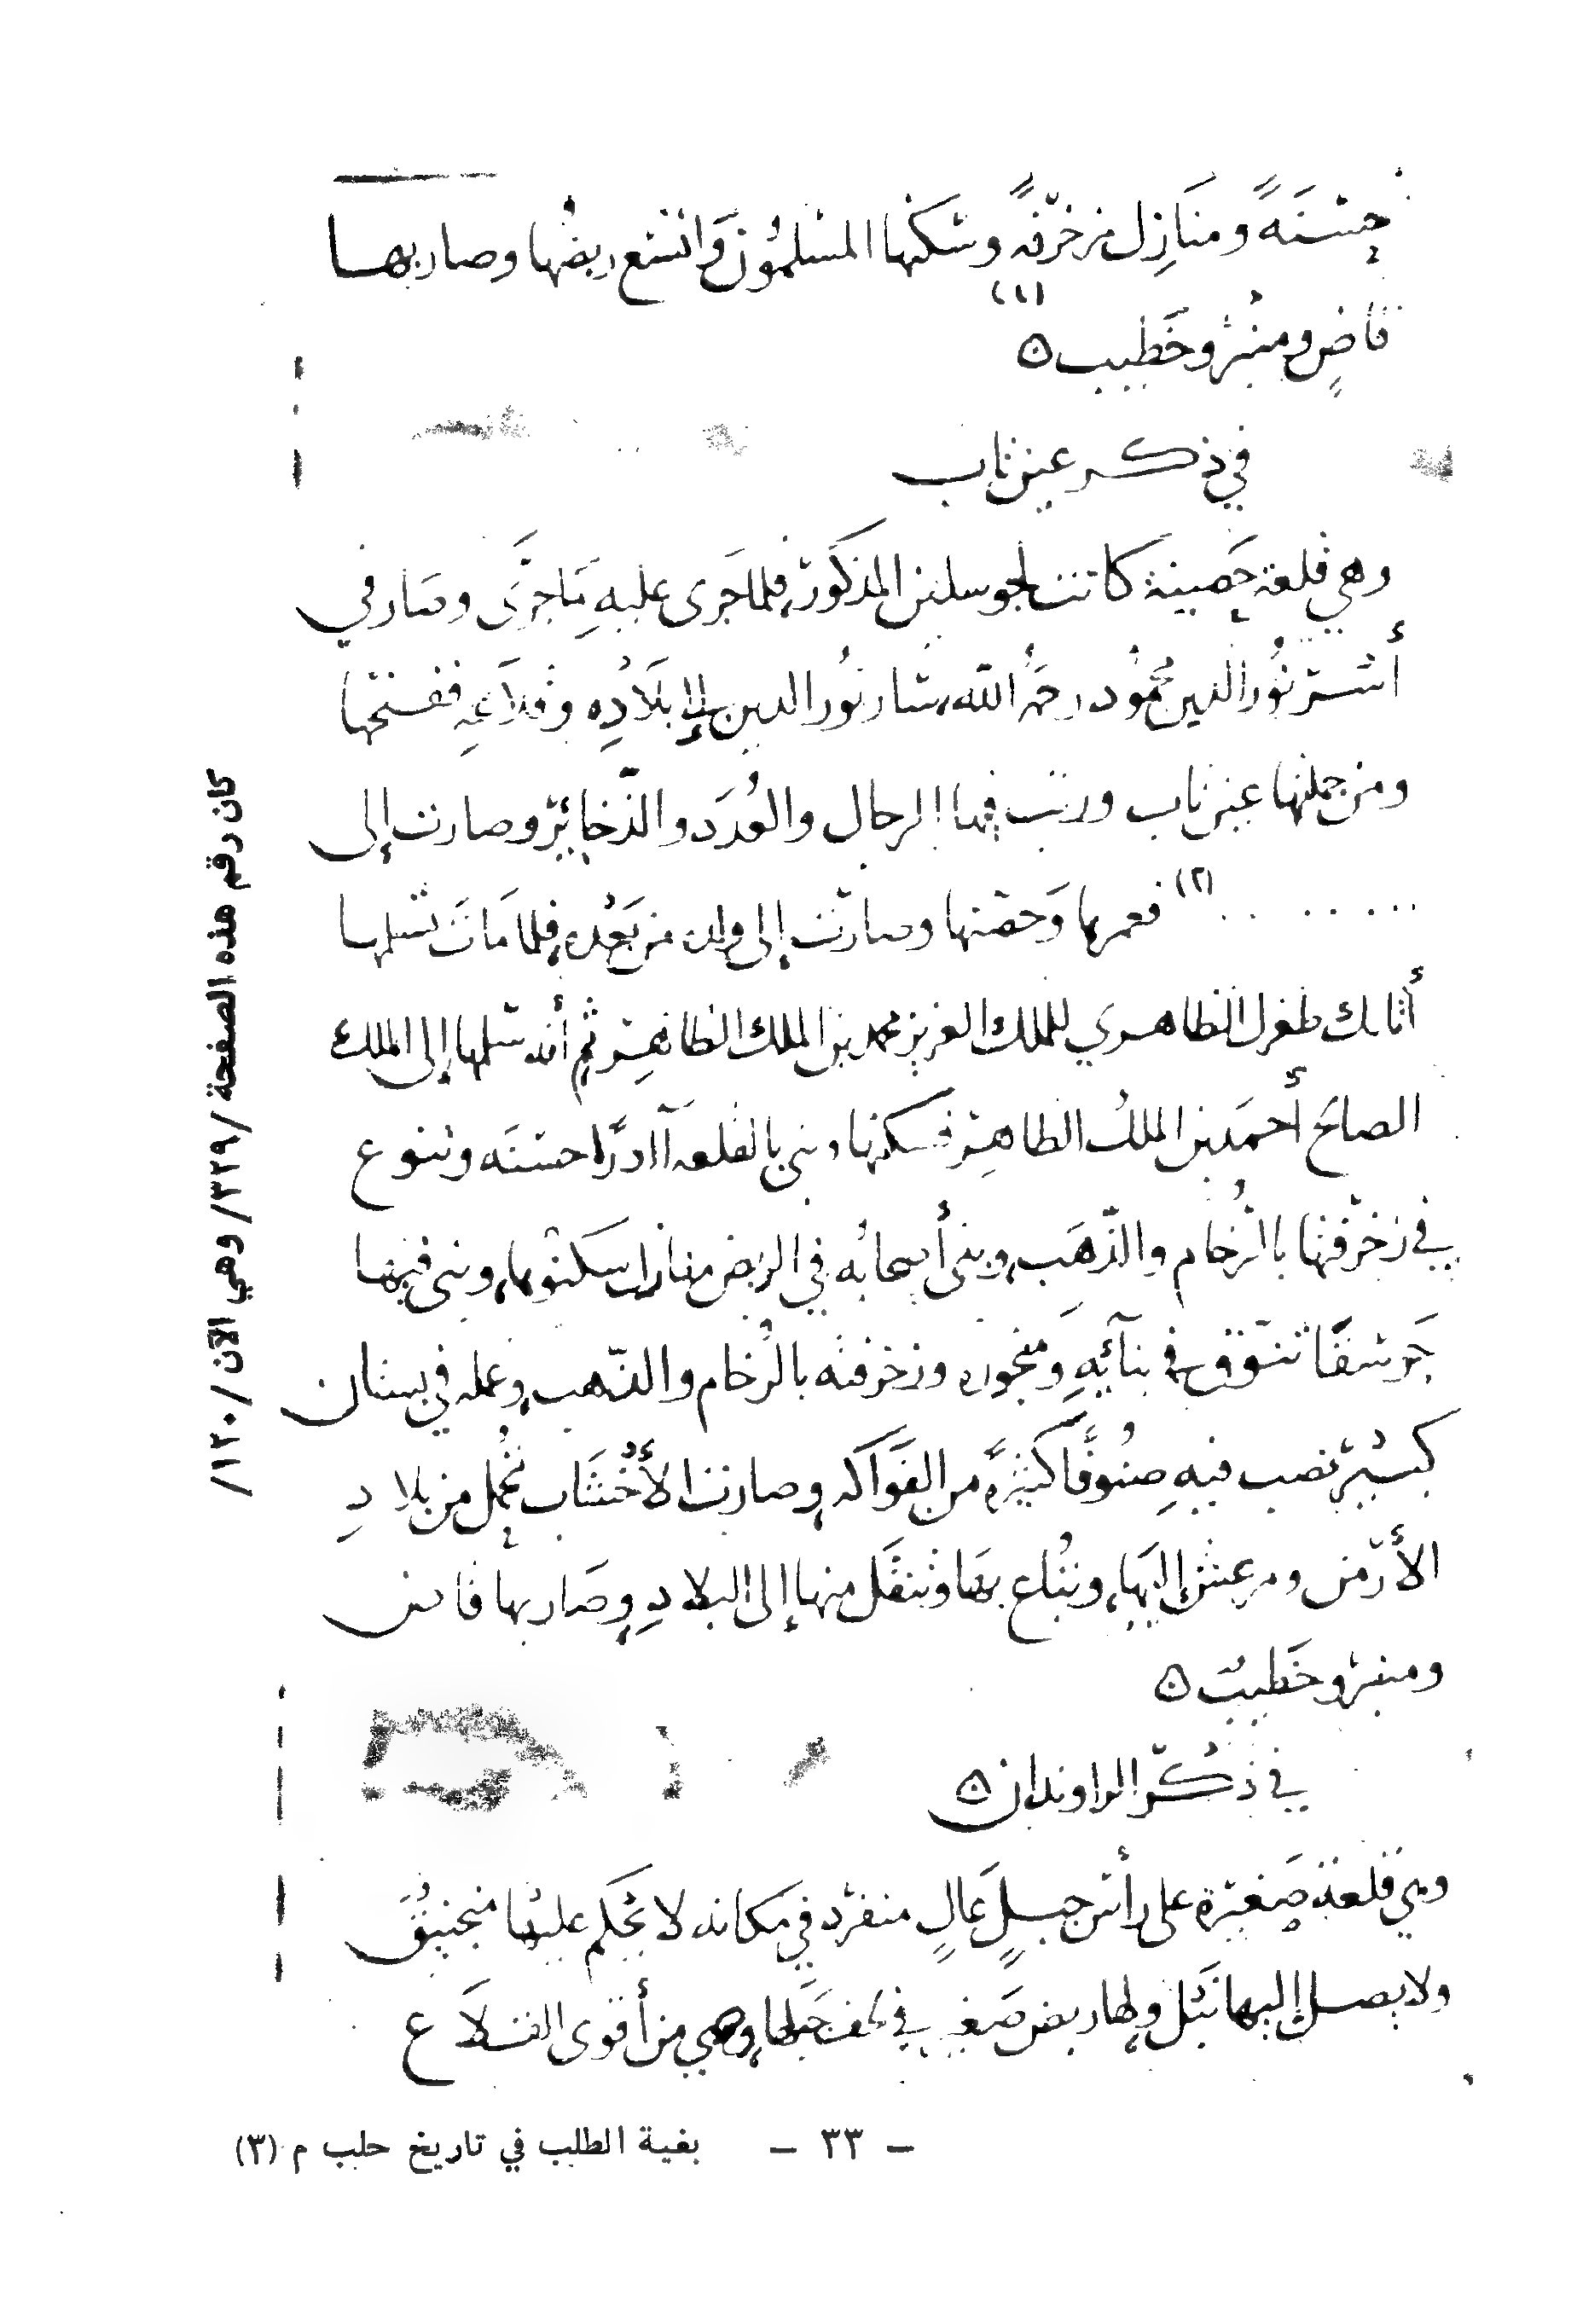 حسنةً ومنازل مزخرفةً وسكنها المسلمون واتسع ربضها وصار بها
(١)
قاضٍ ومنبر وخطيب ه
في ذكر عين تاب
وهي قلعة حصينة كانت لجوسلين المذكور، فلما جرى عليهِ مَا جَرَى وصار في
أسر نُور الدين محمُود رحمهُ الله، سار نُور الدين إلى بلَادِه وقلاعِه ففتحها
ومن جملتها عين تاب ورتب فيها الرجال والعُدَد والذّخاير وصارت إلى
. . . . . . (٢) فعمرها وَحصنها وصارت إلى ولده من بَعْده، فلما مَاتَ تسلمها
أتابك طغرل الظاهري للملك العزيز محمد بن الملك الظاهِر ثم أنه سلمها إلى الملك
الصالح أحمَد بن الملك الظاهِر فسكنها وبنى بالقلعة آدرًا حسنَه وتنوع
في زخرفتها بالرُّخام والذّهَب، وبنى أصحابُه في الربض منازل سكنوها، وبنى فيها
جَوسقًا تنوّق في بنآئِهِ وَمنجوره وزخرفته بالرُّخام والذّهب، وعمله في بستان
كبير نصب فيهِ صنُوفًا كثيرةً من الفَوَاكه، وصارت الأخشَاب تُحمل من بلادِ
الأرمن ومرعش إليهَا، وتبُاع بهَا وتنقَل منها إلى البلادِ، وصَار بها قاض
ومنبر وخَطيبٌ ه
في ذكر الراوندان ه
وهي قلعة صَغيرة على رأس جبلٍ عَالٍ منفرد في مكانه لا يحكم عليهَا منجنيُق
ولا يصل إليها نَبْل، ولها ربض صَغير في لحف جَبلها، وهي من أقوى القلَاع
– ٣٣ – بغية الطلب في تاريخ حلب م (٣)
كان رقم هذه الصفحة /٣٢٩/ وهي الآن /١٢٠/